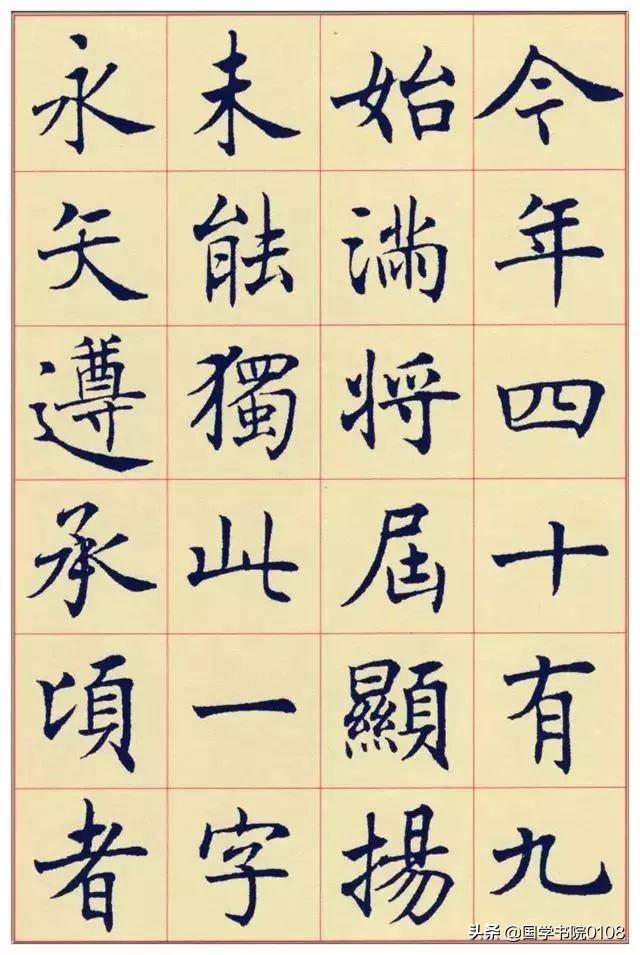 今年四十有九
始滿將屆顯揚
未能獨此一字
永矢遵承頃者
头条 @国学书院0108